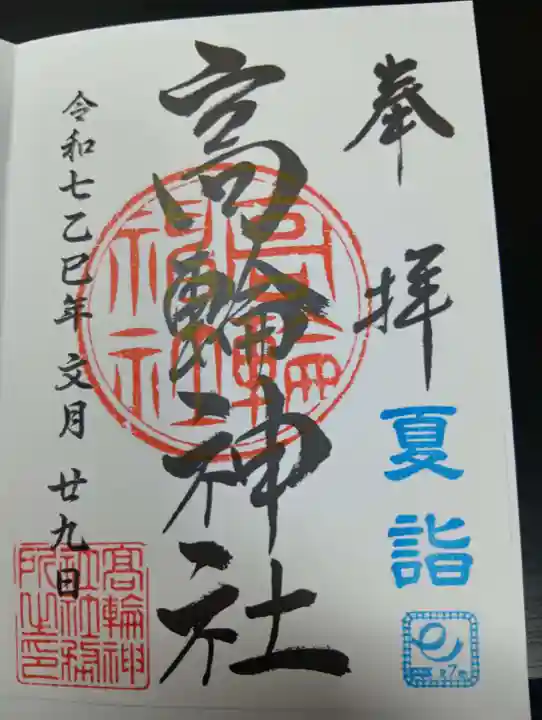 奉拝
夏詣
高輪神社
高輪神社
令和七乙巳年文月廿九日
高輪神社社務所之印